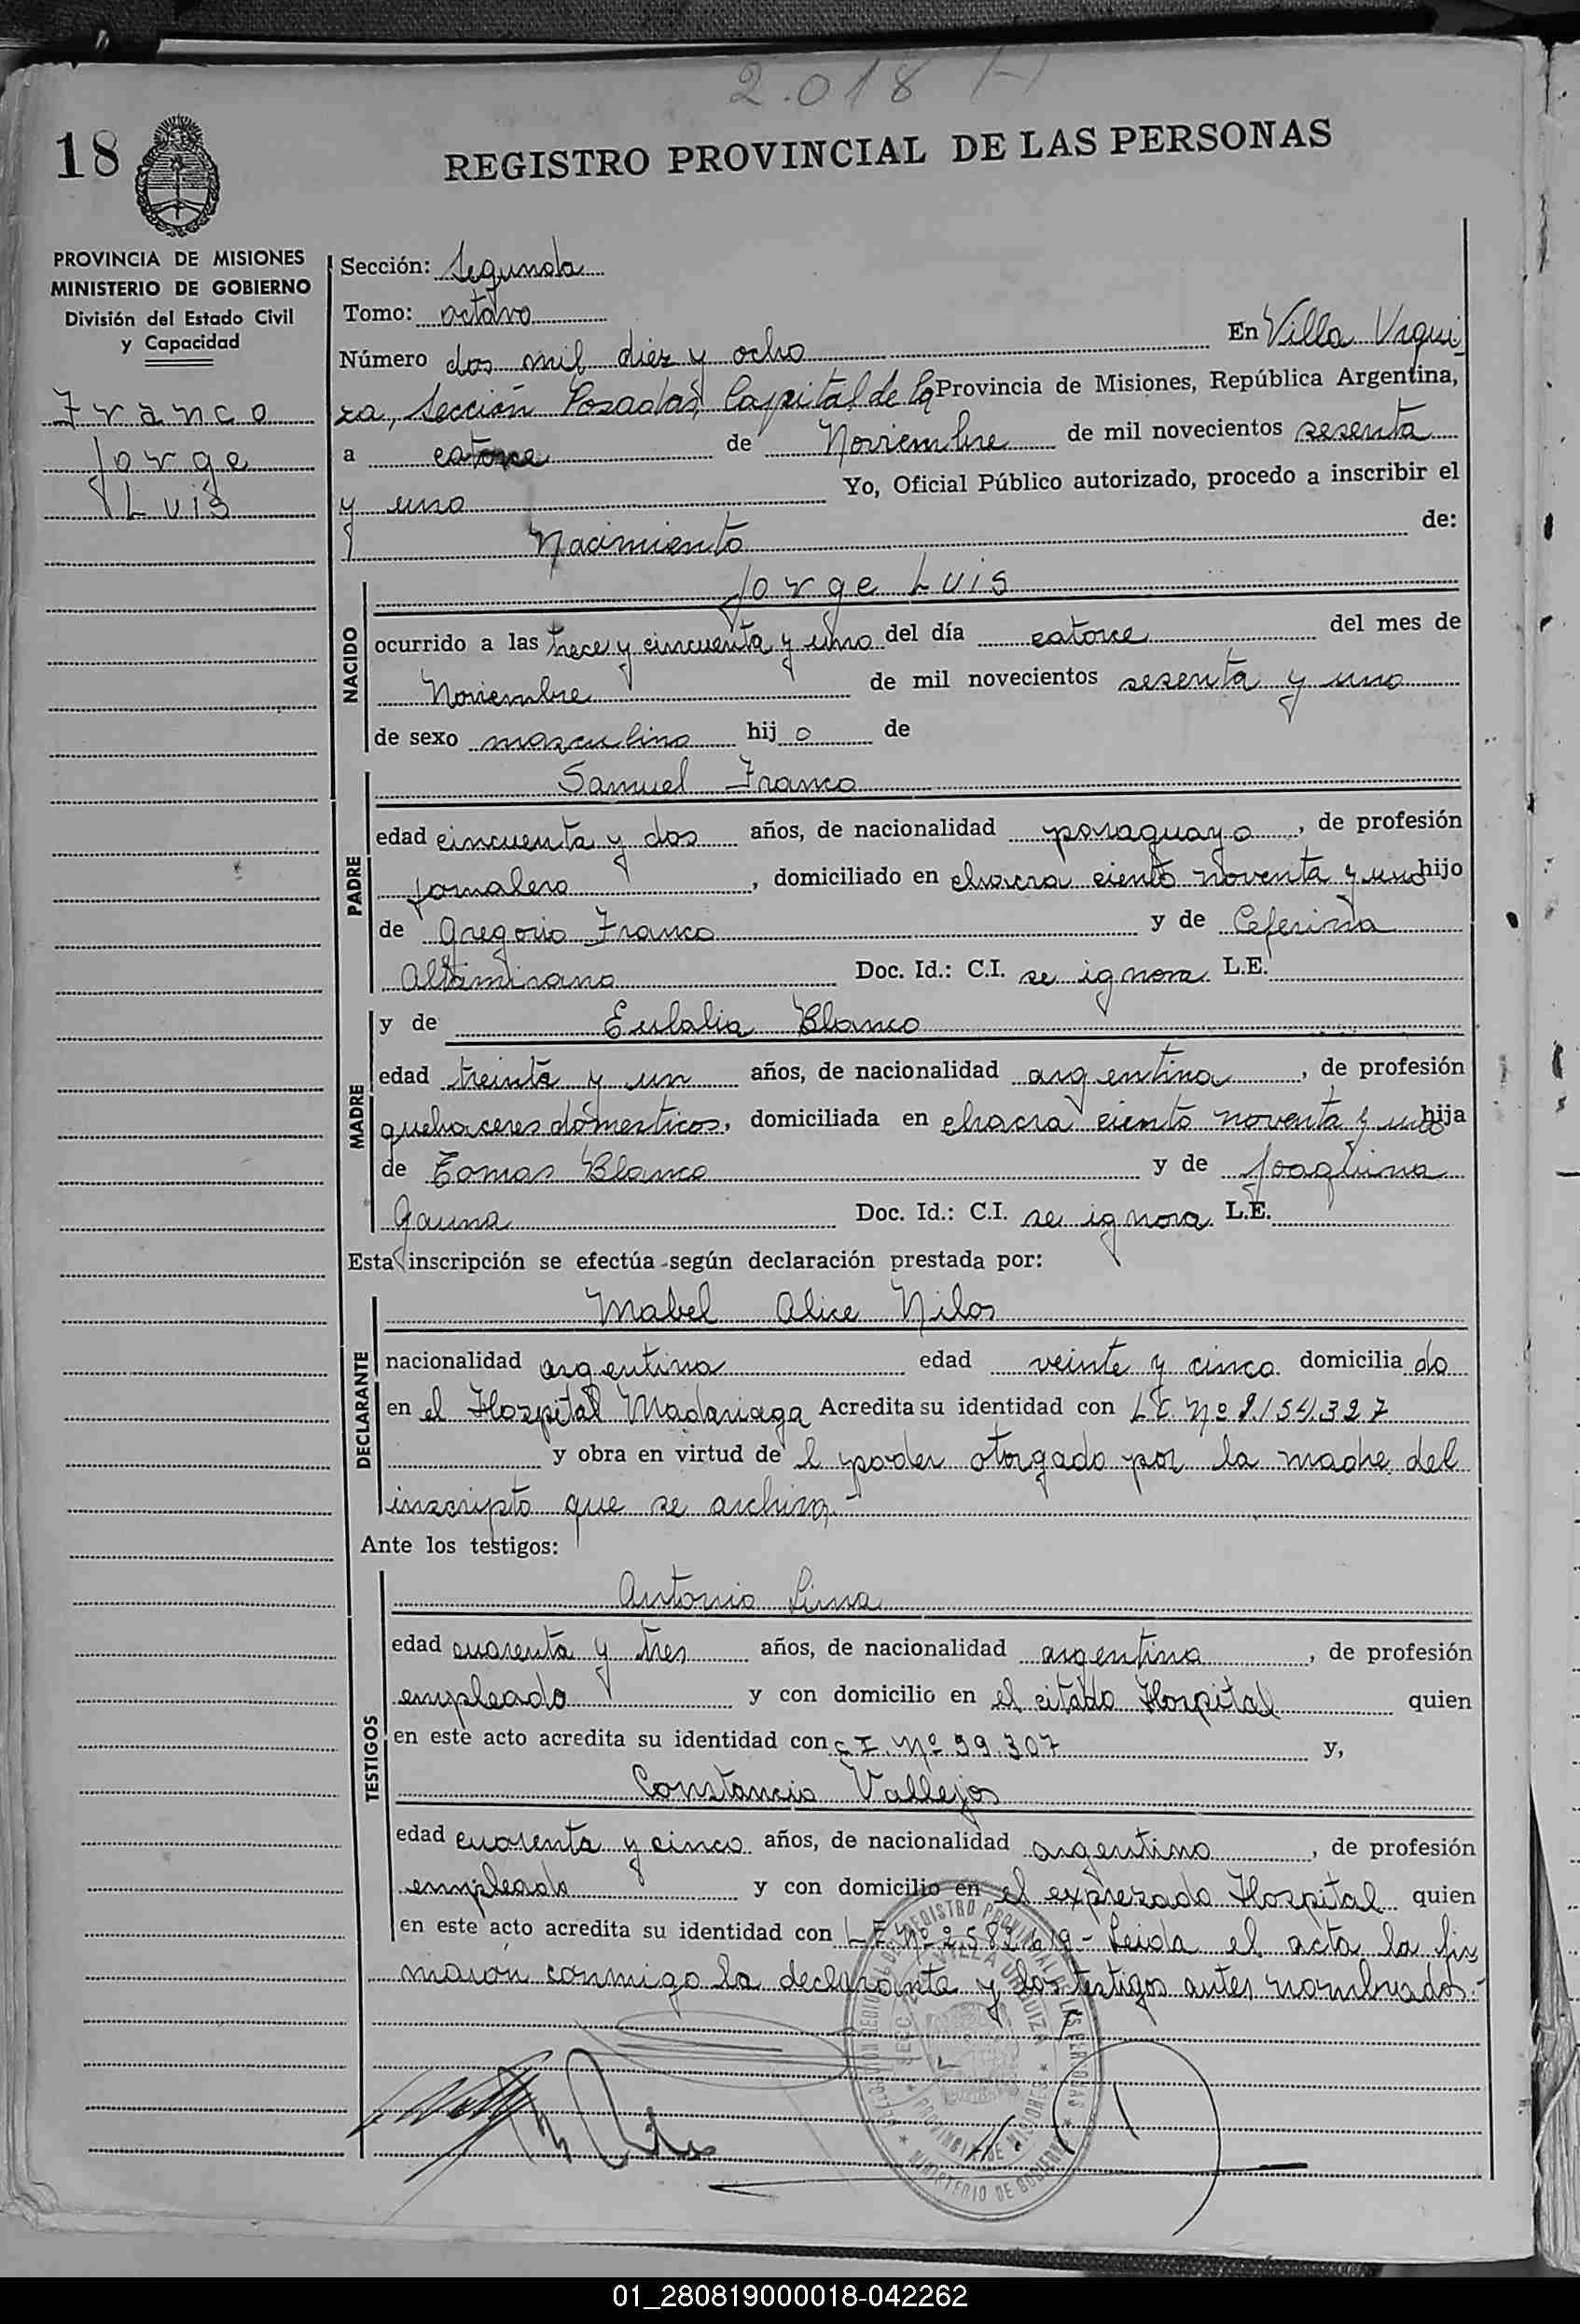 2.018
18
REGISTRO PROVINCIAL DE LAS PERSONAS
PROVINCIA DE MISIONES
MINISTERIO DE GOBIERNO
División del Estado Civil
y Capacidad
Franco
Jorge
Luis
Sección: Segunda
Tomo: octavo
Número dos mil diez y ocho En Villa Urqui
za, Sección Posadas, Capital de la Provincia de Misiones, República Argentina,
a catorce de Noviembre de mil novecientos sesenta
y uno Yo, Oficial Público autorizado, procedo a inscribir el
Nacimiento de:
NACIDO
Jorge Luis
ocurrido a las trece y cincuenta y uno del día catorce del mes de
Noviembre de mil novecientos sesenta y uno
de sexo masculino hij o de
PADRE
Samuel Franco
edad cincuenta y dos años, de nacionalidad paraguaya, de profesión
jornalero, domiciliado en chacra ciento noventa y uno hijo
de Gregorio Franco y de Ceferina
Altamirano Doc. Id.: C.I. se ignora L.E.
MADRE
y de Eulalia Blanco
edad treinta y un años, de nacionalidad argentina, de profesión
quehaceres domesticos, domiciliada en chacra ciento noventa y uno hija
de Tomas Blanco y de Joaquina
Gauna Doc. Id.: C.I. se ignora L.E.
Esta inscripción se efectúa según declaración prestada por:
DECLARANTE
Mabel Alice Nilos
nacionalidad argentina edad veinte y cinco domicilia do
en el Hospital Madariaga Acredita su identidad con L.C. Nº 9.154.327
y obra en virtud de l poder otorgado por la madre del
inscripto que se archiva.-
Ante los testigos:
TESTIGOS
Antonio Lima
edad cuarenta y tres años, de nacionalidad argentina, de profesión
empleado y con domicilio en el citado Hospital quien
en este acto acredita su identidad con C.I. Nº 99.307 y,
Constancio Vallejos
edad cuarenta y cinco años, de nacionalidad argentino, de profesión
empleado y con domicilio en el expresado Hospital quien
en este acto acredita su identidad con L.E. Nº 2.582.619 - Leida el acta la fir
maron conmigo la declarante y los testigos antes nombrados.-
DELEGACION REGIONAL DEL REGISTRO PROVINCIAL DE LAS PERSONAS
SECC. 2ª VILLA URQUIZA
PROVINCIA DE MISIONES
MINISTERIO DE GOBIERNO
01_280819000018-042262